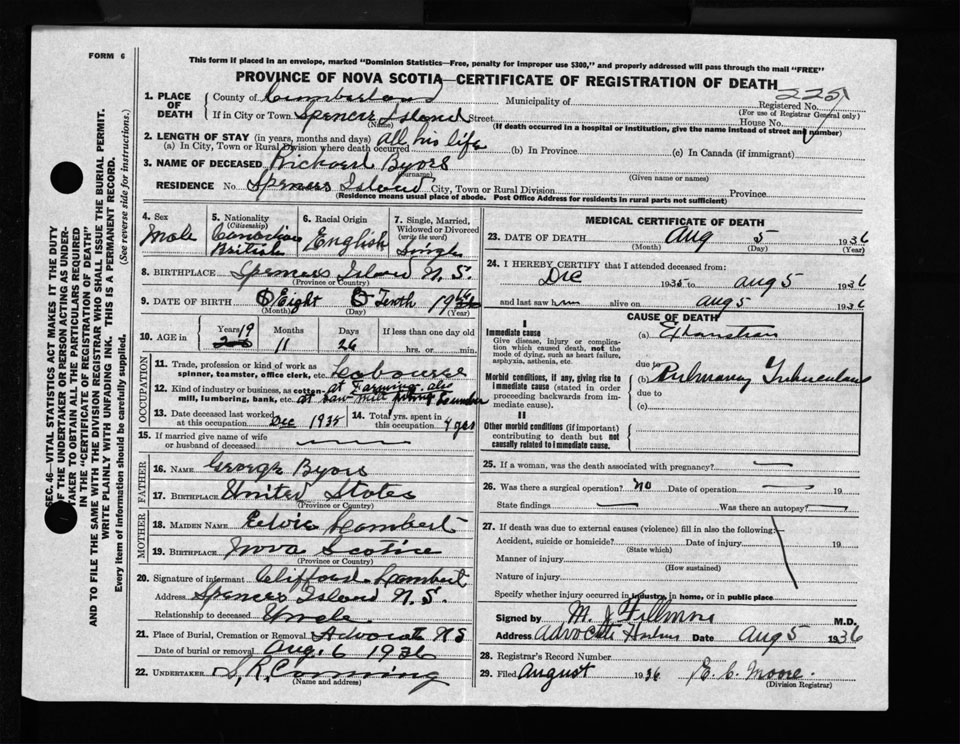 FORM 6
This form if placed in an envelope, marked "Dominion Statistics—Free, penalty for improper use $300," and properly addressed will pass through the mail "FREE"
PROVINCE OF NOVA SCOTIA—CERTIFICATE OF REGISTRATION OF DEATH
2251
1. PLACE OF DEATH County of Cumberland Municipality of Registered No.
(For use of Registrar General only)
If in City or Town Spencers Island Street House No.
(Name) (If death occurred in a hospital or institution, give the name instead of street and number)
2. LENGTH OF STAY (in years, months and days)
(a) In City, Town or Rural Division where death occurred all his life (b) In Province (c) In Canada (if immigrant)
3. NAME OF DECEASED Richard Byors
(Surname) (Given name or names)
RESIDENCE No. Spencers Island City, Town or Rural Division Province
(Residence means usual place of abode. Post Office Address for residents in rural parts not sufficient)
4. Sex Male
5. Nationality (Citizenship) Canadian British
6. Racial Origin English
7. Single, Married, Widowed or Divorced (write the word) Single
8. BIRTHPLACE Spencers Island N.S.
(Province or Country)
9. DATE OF BIRTH Eight Tenth 19
(Month) (Day) (Year)
10. AGE in Years 19 Months 11 Days 26 If less than one day old hrs. or min.
OCCUPATION
11. Trade, profession or kind of work as spinner, teamster, office clerk, etc. Labourer
12. Kind of industry or business, as cotton-mill, lumbering, bank, etc. at Farming also at Saw mill Lumber
13. Date deceased last worked at this occupation Dec 1935
14. Total yrs. spent in this occupation 4 yrs
15. If married give name of wife or husband of deceased
FATHER
16. NAME George Byors
17. BIRTHPLACE United States
(Province or Country)
MOTHER
18. MAIDEN NAME Lambert
19. BIRTHPLACE Nova Scotia
(Province or Country)
20. Signature of informant Clifford Lambert
Address Spencers Island N.S.
Relationship to deceased Uncle
21. Place of Burial, Cremation or Removal Advocate N S
Date of burial or removal Aug. 6 1936
22. UNDERTAKER S, R, Corning
(Name and address)
MEDICAL CERTIFICATE OF DEATH
23. DATE OF DEATH Aug 5 1936
(Month) (Day) (Year)
24. I HEREBY CERTIFY that I attended deceased from:
Dec 1935 to aug 5 1936
and last saw him alive on aug 5 1936
CAUSE OF DEATH
I
Immediate cause
Give disease, injury or complication which caused death, not the mode of dying, such as heart failure, asphyxia, asthenia, etc.
(a) Exhaustion
due to
Morbid conditions, if any, giving rise to immediate cause (stated in order proceeding backwards from immediate cause).
(b) Pulmonary Tuberculosis
due to
(c)
II
Other morbid conditions (if important) contributing to death but not causally related to immediate cause.
25. If a woman, was the death associated with pregnancy?
26. Was there a surgical operation? no Date of operation 19
State findings Was there an autopsy?
27. If death was due to external causes (violence) fill in also the following:
Accident, suicide or homicide? Date of injury 19
(State which)
Manner of injury
(How sustained)
Nature of injury
Specify whether injury occurred in industry, in home, or in public place
Signed by M. J. Fillmore M.D.
Address Advocate Harbour Date Aug 5 1936
28. Registrar's Record Number
29. Filed August 1936 E. C. Moore
(Division Registrar)
SEC. 46—VITAL STATISTICS ACT MAKES IT THE DUTY
OF THE UNDERTAKER OR PERSON ACTING AS UNDER-
TAKER TO OBTAIN ALL THE PARTICULARS REQUIRED
IN THE "CERTIFICATE OF REGISTRATION OF DEATH"
AND TO FILE THE SAME WITH THE DIVISION REGISTRAR WHO SHALL ISSUE THE BURIAL PERMIT.
WRITE PLAINLY WITH UNFADING INK. THIS IS A PERMANENT RECORD.
Every item of information should be carefully supplied. (See reverse side for instructions.)